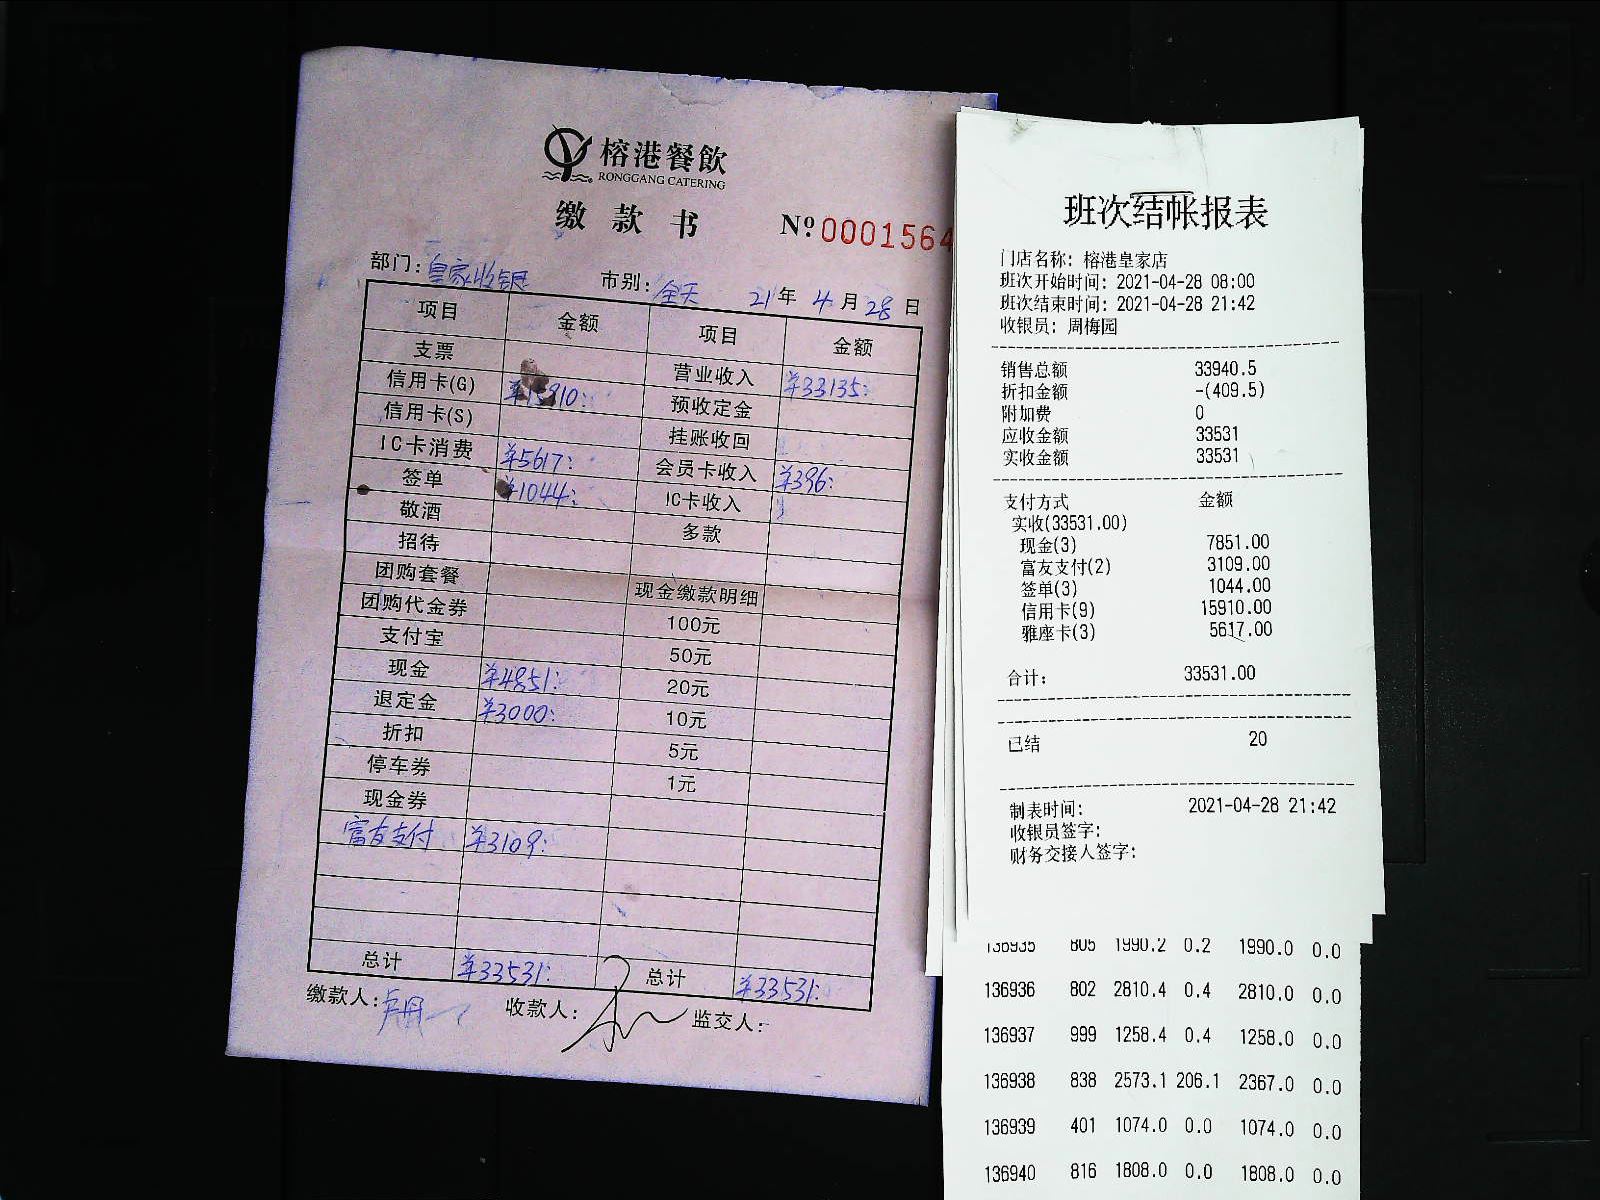 榕港餐飲
RONGGANG CATERING
缴款书 Nº 0001564
部门: 皇家收银 市别: 全天 21年 4月 28日
项目 金额 项目 金额
支票 营业收入 ¥33135:
信用卡(G) 预收定金
信用卡(S) 挂账收回
IC卡消费 ¥5617: 会员卡收入 ¥396:
签单 ¥1044: IC卡收入
敬酒 多款
招待
团购套餐 现金缴款明细
团购代金券 100元
支付宝 50元
现金 ¥4851: 20元
退定金 ¥3000: 10元
折扣 5元
停车券 1元
现金券
富友支付 ¥3109:
总计 ¥33531: 总计 ¥33531:
缴款人: 收款人: 监交人:
班次结帐报表
门店名称: 榕港皇家店
班次开始时间: 2021-04-28 08:00
班次结束时间: 2021-04-28 21:42
收银员: 周梅园
销售总额 33940.5
折扣金额 -(409.5)
附加费 0
应收金额 33531
实收金额 33531
支付方式 金额
实收(33531.00)
现金(3) 7851.00
富友支付(2) 3109.00
签单(3) 1044.00
信用卡(9) 15910.00
雅座卡(3) 5617.00
合计: 33531.00
已结 20
制表时间: 2021-04-28 21:42
收银员签字:
财务交接人签字:
136935 805 1990.2 0.2 1990.0 0.0
136936 802 2810.4 0.4 2810.0 0.0
136937 999 1258.4 0.4 1258.0 0.0
136938 838 2573.1 206.1 2367.0 0.0
136939 401 1074.0 0.0 1074.0 0.0
136940 816 1808.0 0.0 1808.0 0.0